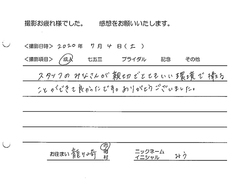 撮影お疲れ様でした。　感想をお願いいたします。
＜撮影日時＞ 2020年 7月 4日（土）
＜撮影項目＞ 成人 七五三 ブライダル 記念 その他
スタッフのみなさんが親切でとてもいい環境で撮る
ことができて良かったです。ありがとうございました。
お住まい 龍ケ崎 市 町 村 ニックネーム イニシャル みう